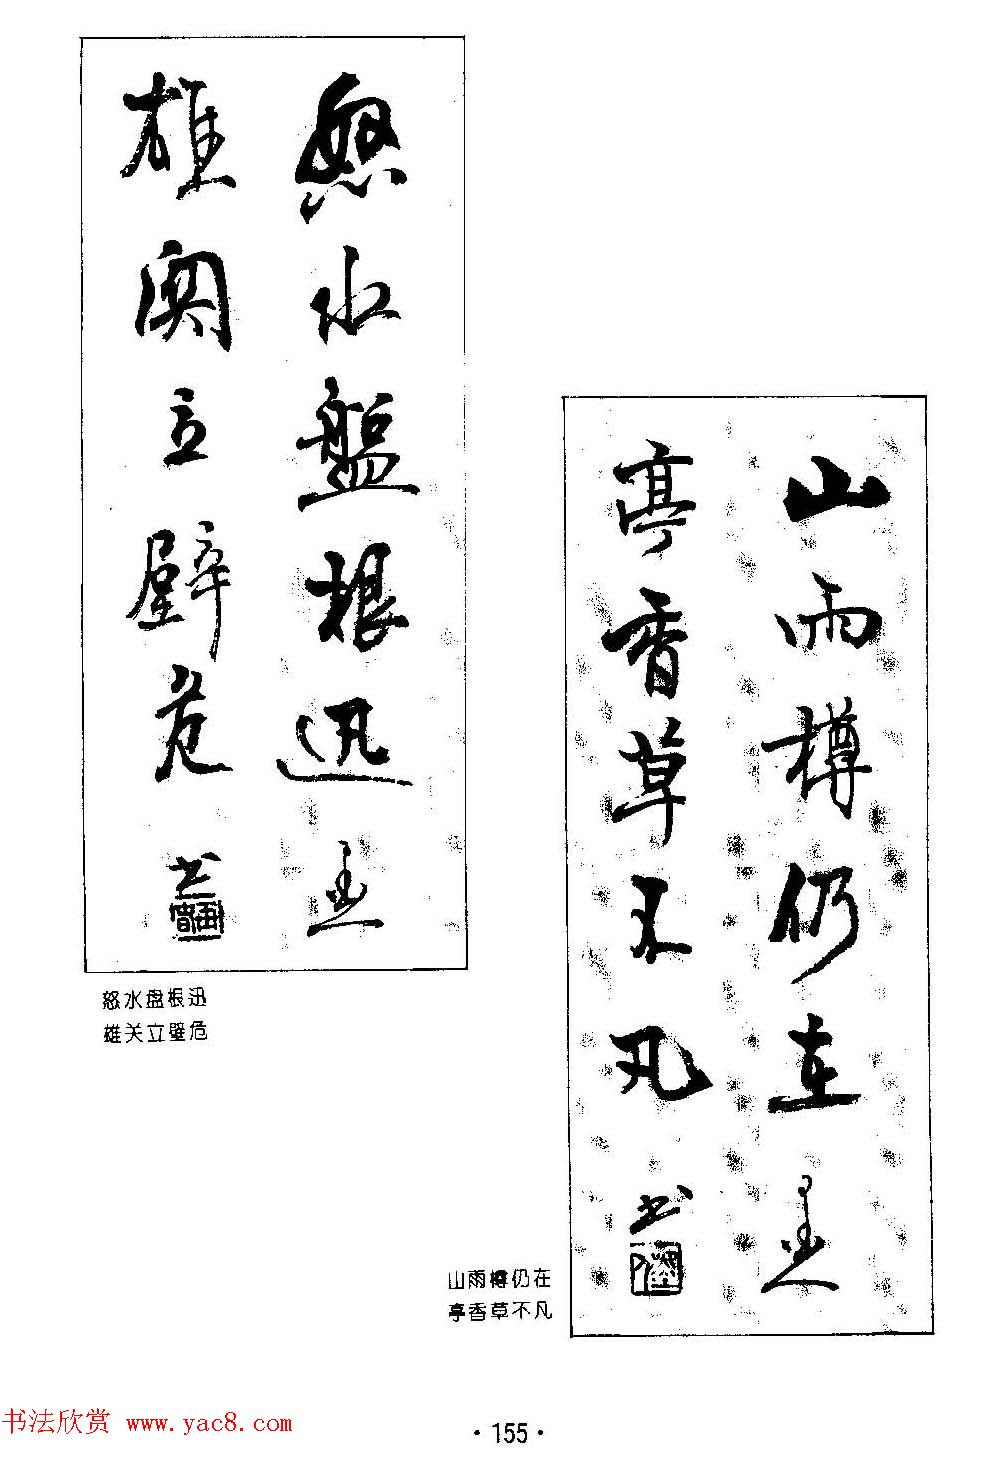 怒水盤根迅
雄関立壁危
书
怒水盘根迅
雄关立壁危
山雨樽仍在
亭香草不凡
书
山雨樽仍在
亭香草不凡
书法欣赏 www.yac8.com
·155·